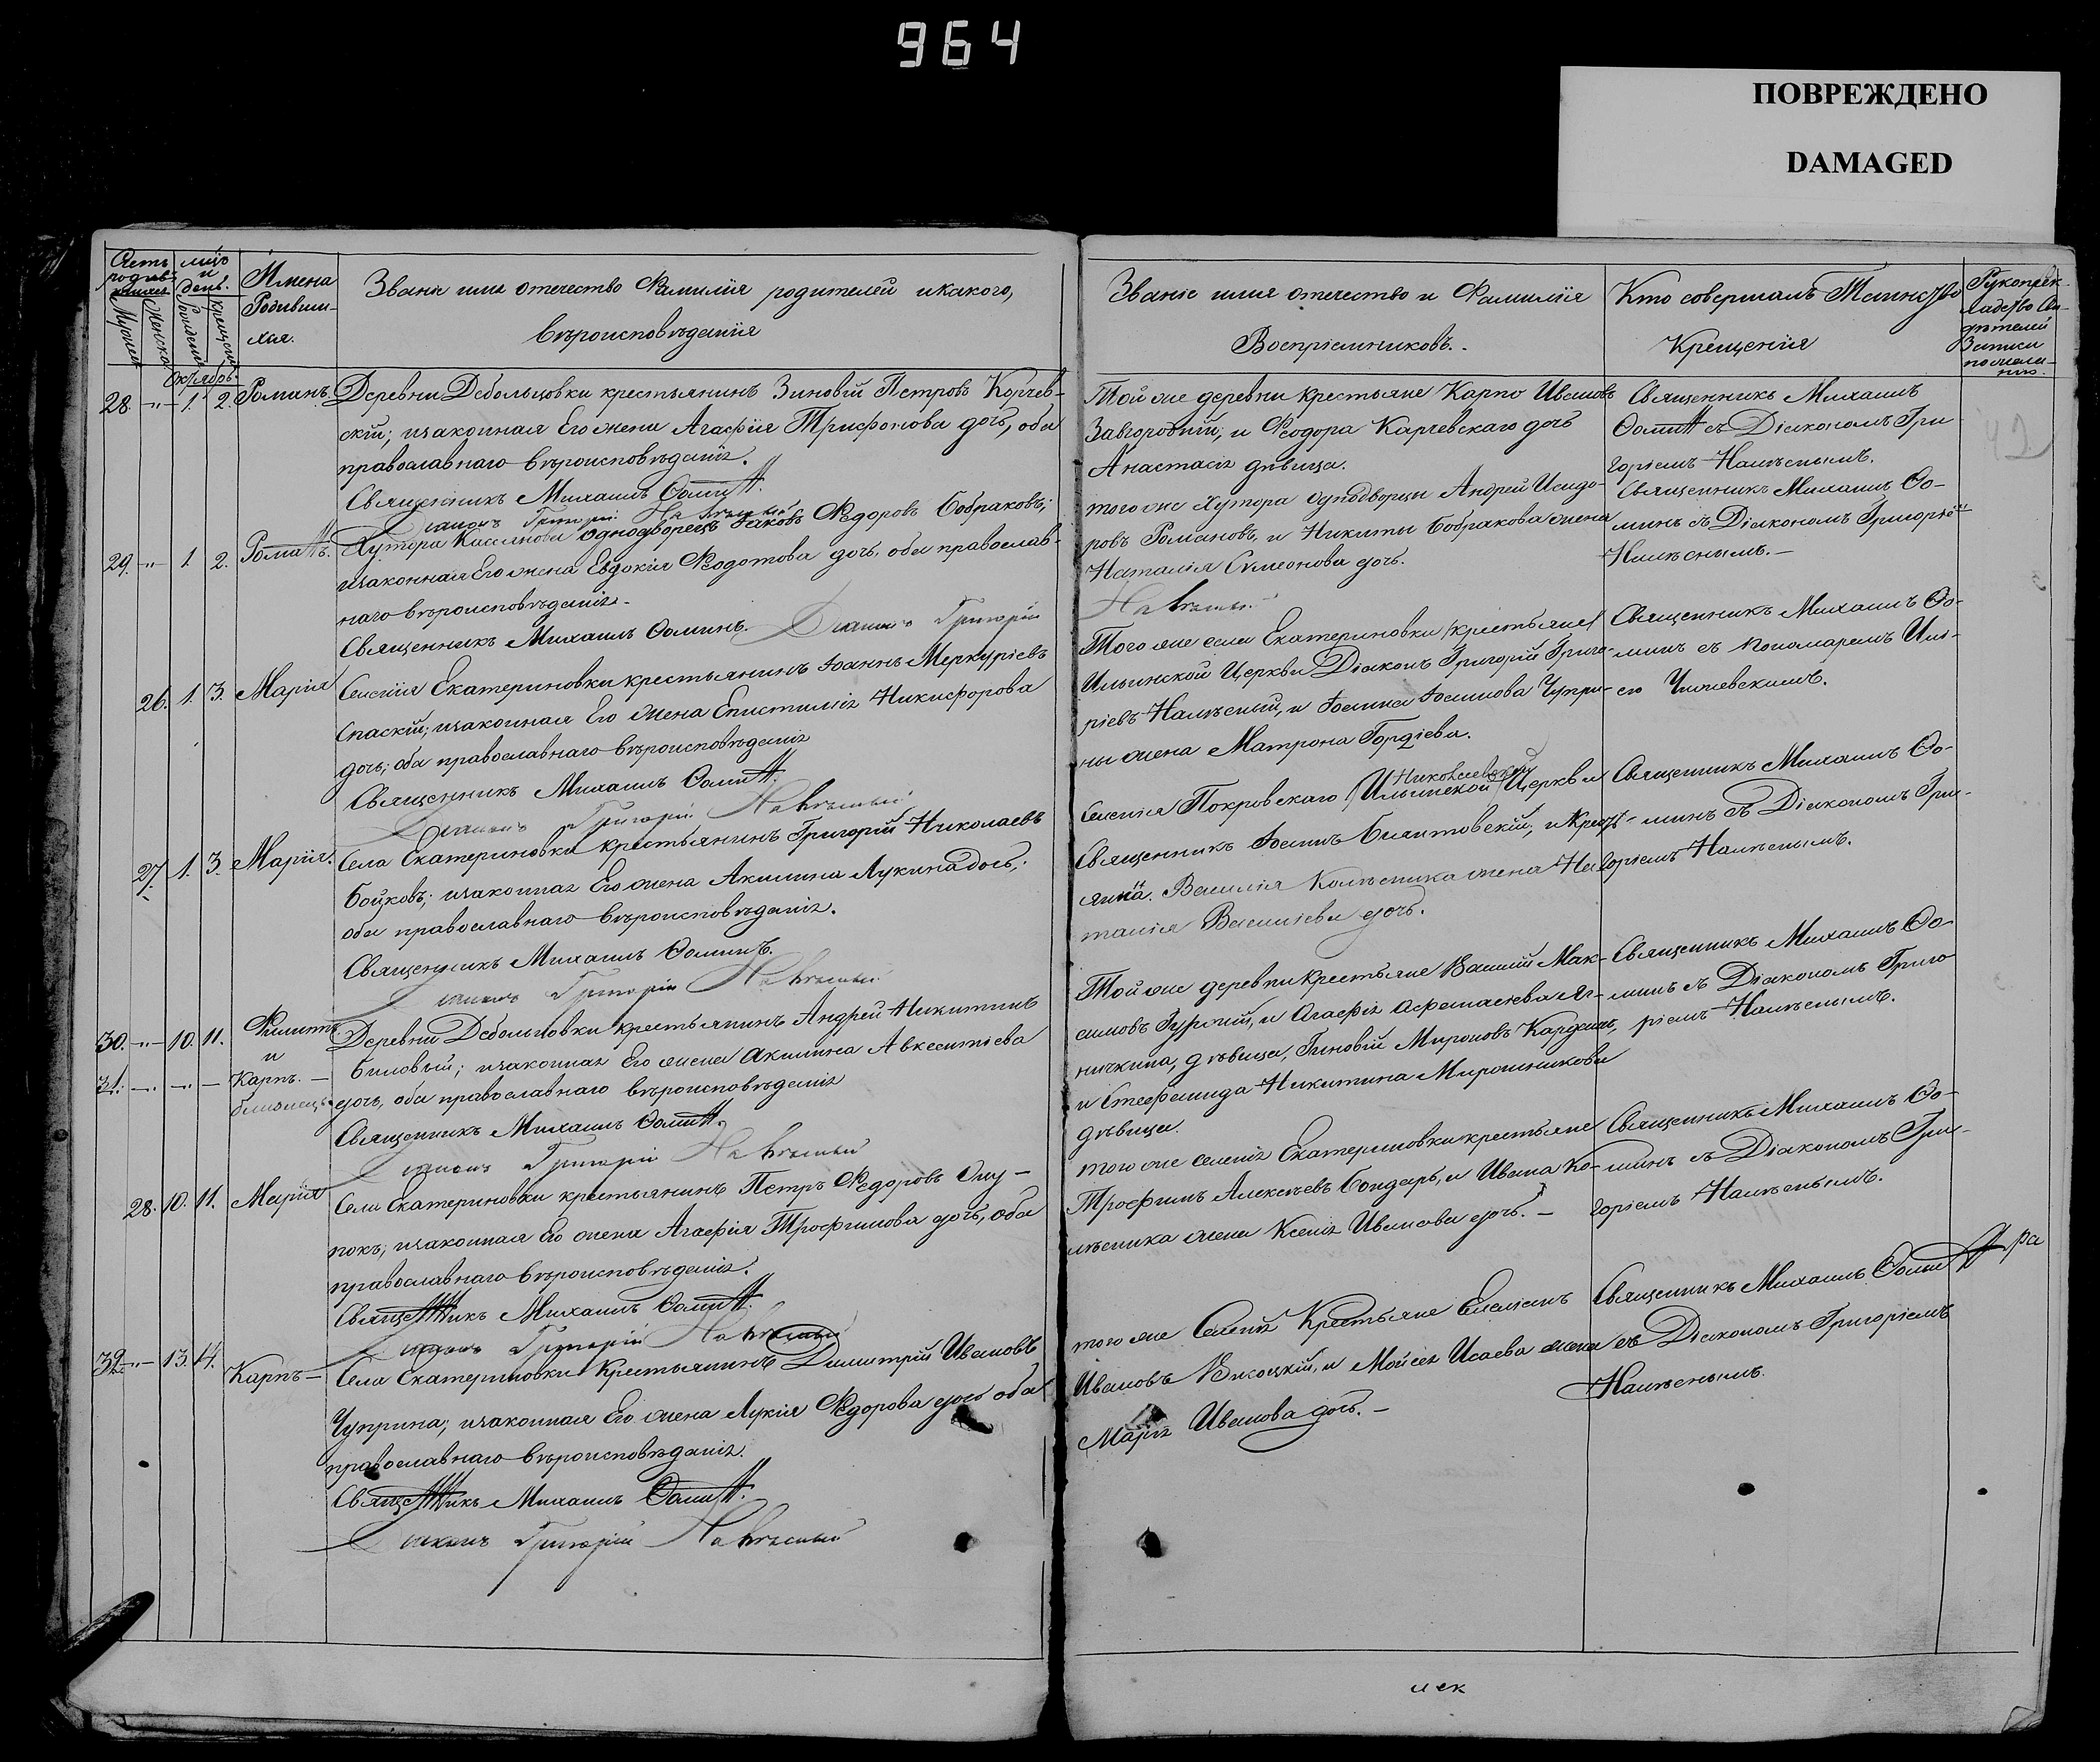 964
ПОВРЕЖДЕНО
DAMAGED
Счетъ родив-шихся
Мужеска
Женска
мцъ и день.
Рожденія
Крещенія
Имена Родивши-хся.
Званіе имя отечество Фамилія родителей и какого,
вѣроисповѣданія
Званіе имя отечество и Фамилія
Воспріемниковъ.
Кто совершалъ Таинство
Крещенія
Рукоприк-
ладство сви-
дѣтелей
записи
по жела-
нію.
Октябрь.
28. -"- 1. 2. Романъ.
Деревни Дебольцовки крестьянинъ Зиновій Петровъ Корчев-
скій; и законная Его жена Агафія Трифонова дочь, оба
православнаго вѣроисповѣданія.
Священникъ Михаилъ Ѳоминъ.
Діаконъ Григорій
Той же деревни крестьяне Карпо Ивановъ
Завгородній, и Ѳеодора Карчевскаго дочь
Анастасія дѣвица.
Священникъ Михаилъ
Ѳоминъ съ Діакономъ Гри
горіемъ
42
29. -"- 1. 2. Романъ.
Хутора Кассянова однодворецъ Іаковъ Ѳедоровъ Бобраковъ;
и законная Его жена Евдокія Ѳедотова дочь, оба православ-
наго вѣроисповѣданія.
Священникъ Михаилъ Ѳоминъ. Діаконъ Григорій
того же Хутора однодворцы Андрей Исидо-
ровъ Романовъ, и Никиты Бобракова жена
Наталія Симеонова дочь.
Священникъ Михаилъ Ѳо-
минъ съ Діакономъ Григоріе
26. 1. 3. Марія
Селенія Екатериновки крестьянинъ Іоаннъ Меркуріевъ
Спаскій; и законная Его жена Епистимія Никифорова
дочь; оба православнаго вѣроисповѣданія
Священникъ Михаилъ Ѳоминъ.
Діаконъ Григорій
Того же села Екатериновки (крестьяне)
Ильинской Церкви Діаконъ Григорій Григо-
ріевъ и Іоанна Іоаннова Чупри-
ны жена Матрона Гордіева.
Священникъ Михаилъ Ѳо-
минъ съ Пономаремъ
27. 1. 3. Марія.
Села Екатериновки крестьянинъ Григорій Николаевъ
Бойковъ; и законная Его жена Акилина Лукина дочь;
оба православнаго вѣроисповѣданія.
Священникъ Михаилъ Ѳоминъ.
Діаконъ Григорій
Селенія Покровскаго (Ильинской) Николаевской Церкви
Священникъ Іоаннъ и крестъ-
янина Василія Колѣсника жена На
талія Василіева дочь.
Священникъ Михаилъ Ѳо-
минъ съ Діакономъ Гри-
горіемъ
30. -"- 10. 11. Филиппъ
и
31. -"- -"- — Карпъ. —
близнецы
Деревни Дебольцовки крестьянинъ Андрей Никитинъ
Биловый; и законная Его жена Акилина Авксентіева
дочь, оба православнаго вѣроисповѣданія
Священникъ Михаилъ Ѳоминъ.
Діаконъ Григорій
Той же деревни крестьяне Василій Мак-
симовъ и Агафія Афанасіева
дѣвица, Зиновій Мироновъ
и Стефанида Никитина Мирошникова
дѣвица.
Священникъ Михаилъ Ѳо
минъ съ Діакономъ Григо
ріемъ
28. 10. 11. Марія
Села Екатериновки крестьянинъ Петръ Ѳедоровъ Ону-
и законная Его жена Агафія Трофимова дочь, оба
православнаго вѣроисповѣданія.
Священникъ Михаилъ Ѳоминъ.
Діаконъ Григорій
того же селенія Екатериновки крестьяне
Трофимъ Алексѣевъ Бондарь, и Ивана Ко-
лѣсника жена Ксенія Иванова дочь. —
Священникъ Михаилъ Ѳо-
минъ съ Діакономъ Гри-
горіемъ
32. -"- 13. 14. Карпъ —
Села Екатериновки Крестьянинъ Димитрій Ивановъ
Чуприна; и законная Его жена Лукія Ѳедорова дочь оба
православнаго вѣроисповѣданія.
Священникъ Михаилъ Ѳоминъ.
Діаконъ Григорій
того же Селенія Крестьяне
Ивановъ и Мойсея Исаева жена
Марія Иванова дочь. —
Священникъ Михаилъ Ѳоминъ
съ Діакономъ Григоріемъ